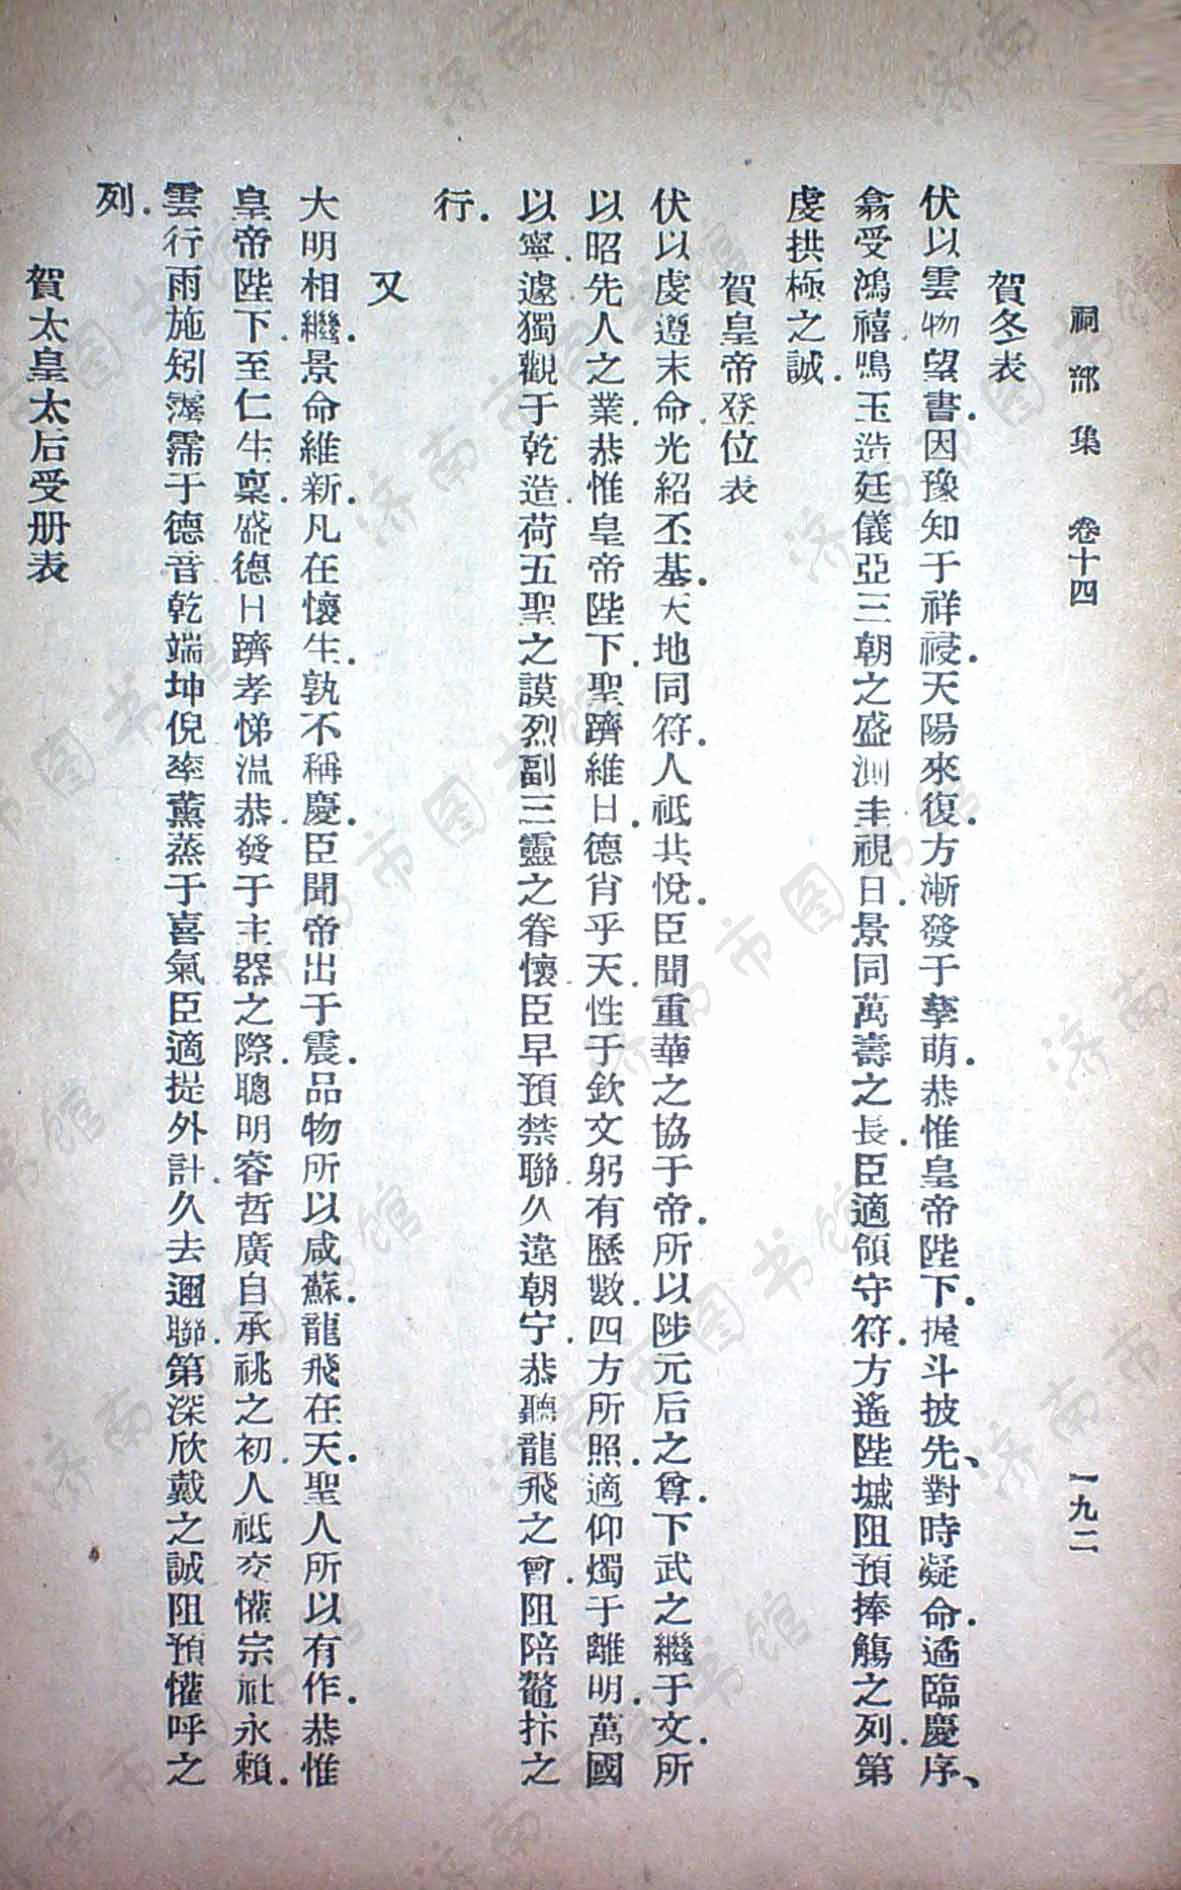 祠部集　卷十四　一九二
賀冬表
伏以雲物望書.因豫知于祥祲.天陽來復.方漸發于孳萌.恭惟皇帝陛下.握斗披先、對時凝命.遹臨慶序、
翕受鴻禧鳴玉造廷儀亞三朝之盛測圭視日.景同萬壽之長.臣適領守符.方遙陛城阻預捧觴之列.第
虔拱極之誠.
賀皇帝登位表
伏以虔遵末命光紹丕基.天地同符.人祗共悅.臣聞重華之協于帝.所以陟元后之尊.下武之繼于文.所
以昭先人之業.恭惟皇帝陛下.聖躋維日.德肖乎天.性于欽文躬有歷數.四方所照.適仰燭于離明.萬國
以寧.遽獨觀于乾造.荷五聖之謨烈副三靈之眷懷臣早預禁聯.久違朝宁.恭聽龍飛之會.阻陪鼇抃之
行.
又
大明相繼.景命維新.凡在懷生.孰不稱慶.臣聞帝出于震.品物所以咸蘇.龍飛在天.聖人所以有作.恭惟
皇帝陛下.至仁生稟.盛德日躋孝悌溫恭.發于主器之際.聰明睿哲廣自承祧之初.人祗交懽宗社永賴.
雲行雨施矧霶霈于德音乾端坤倪率薰蒸于喜氣臣適提外計.久去邇聯.第深欣戴之誠阻預懽呼之
列.
賀太皇太后受册表